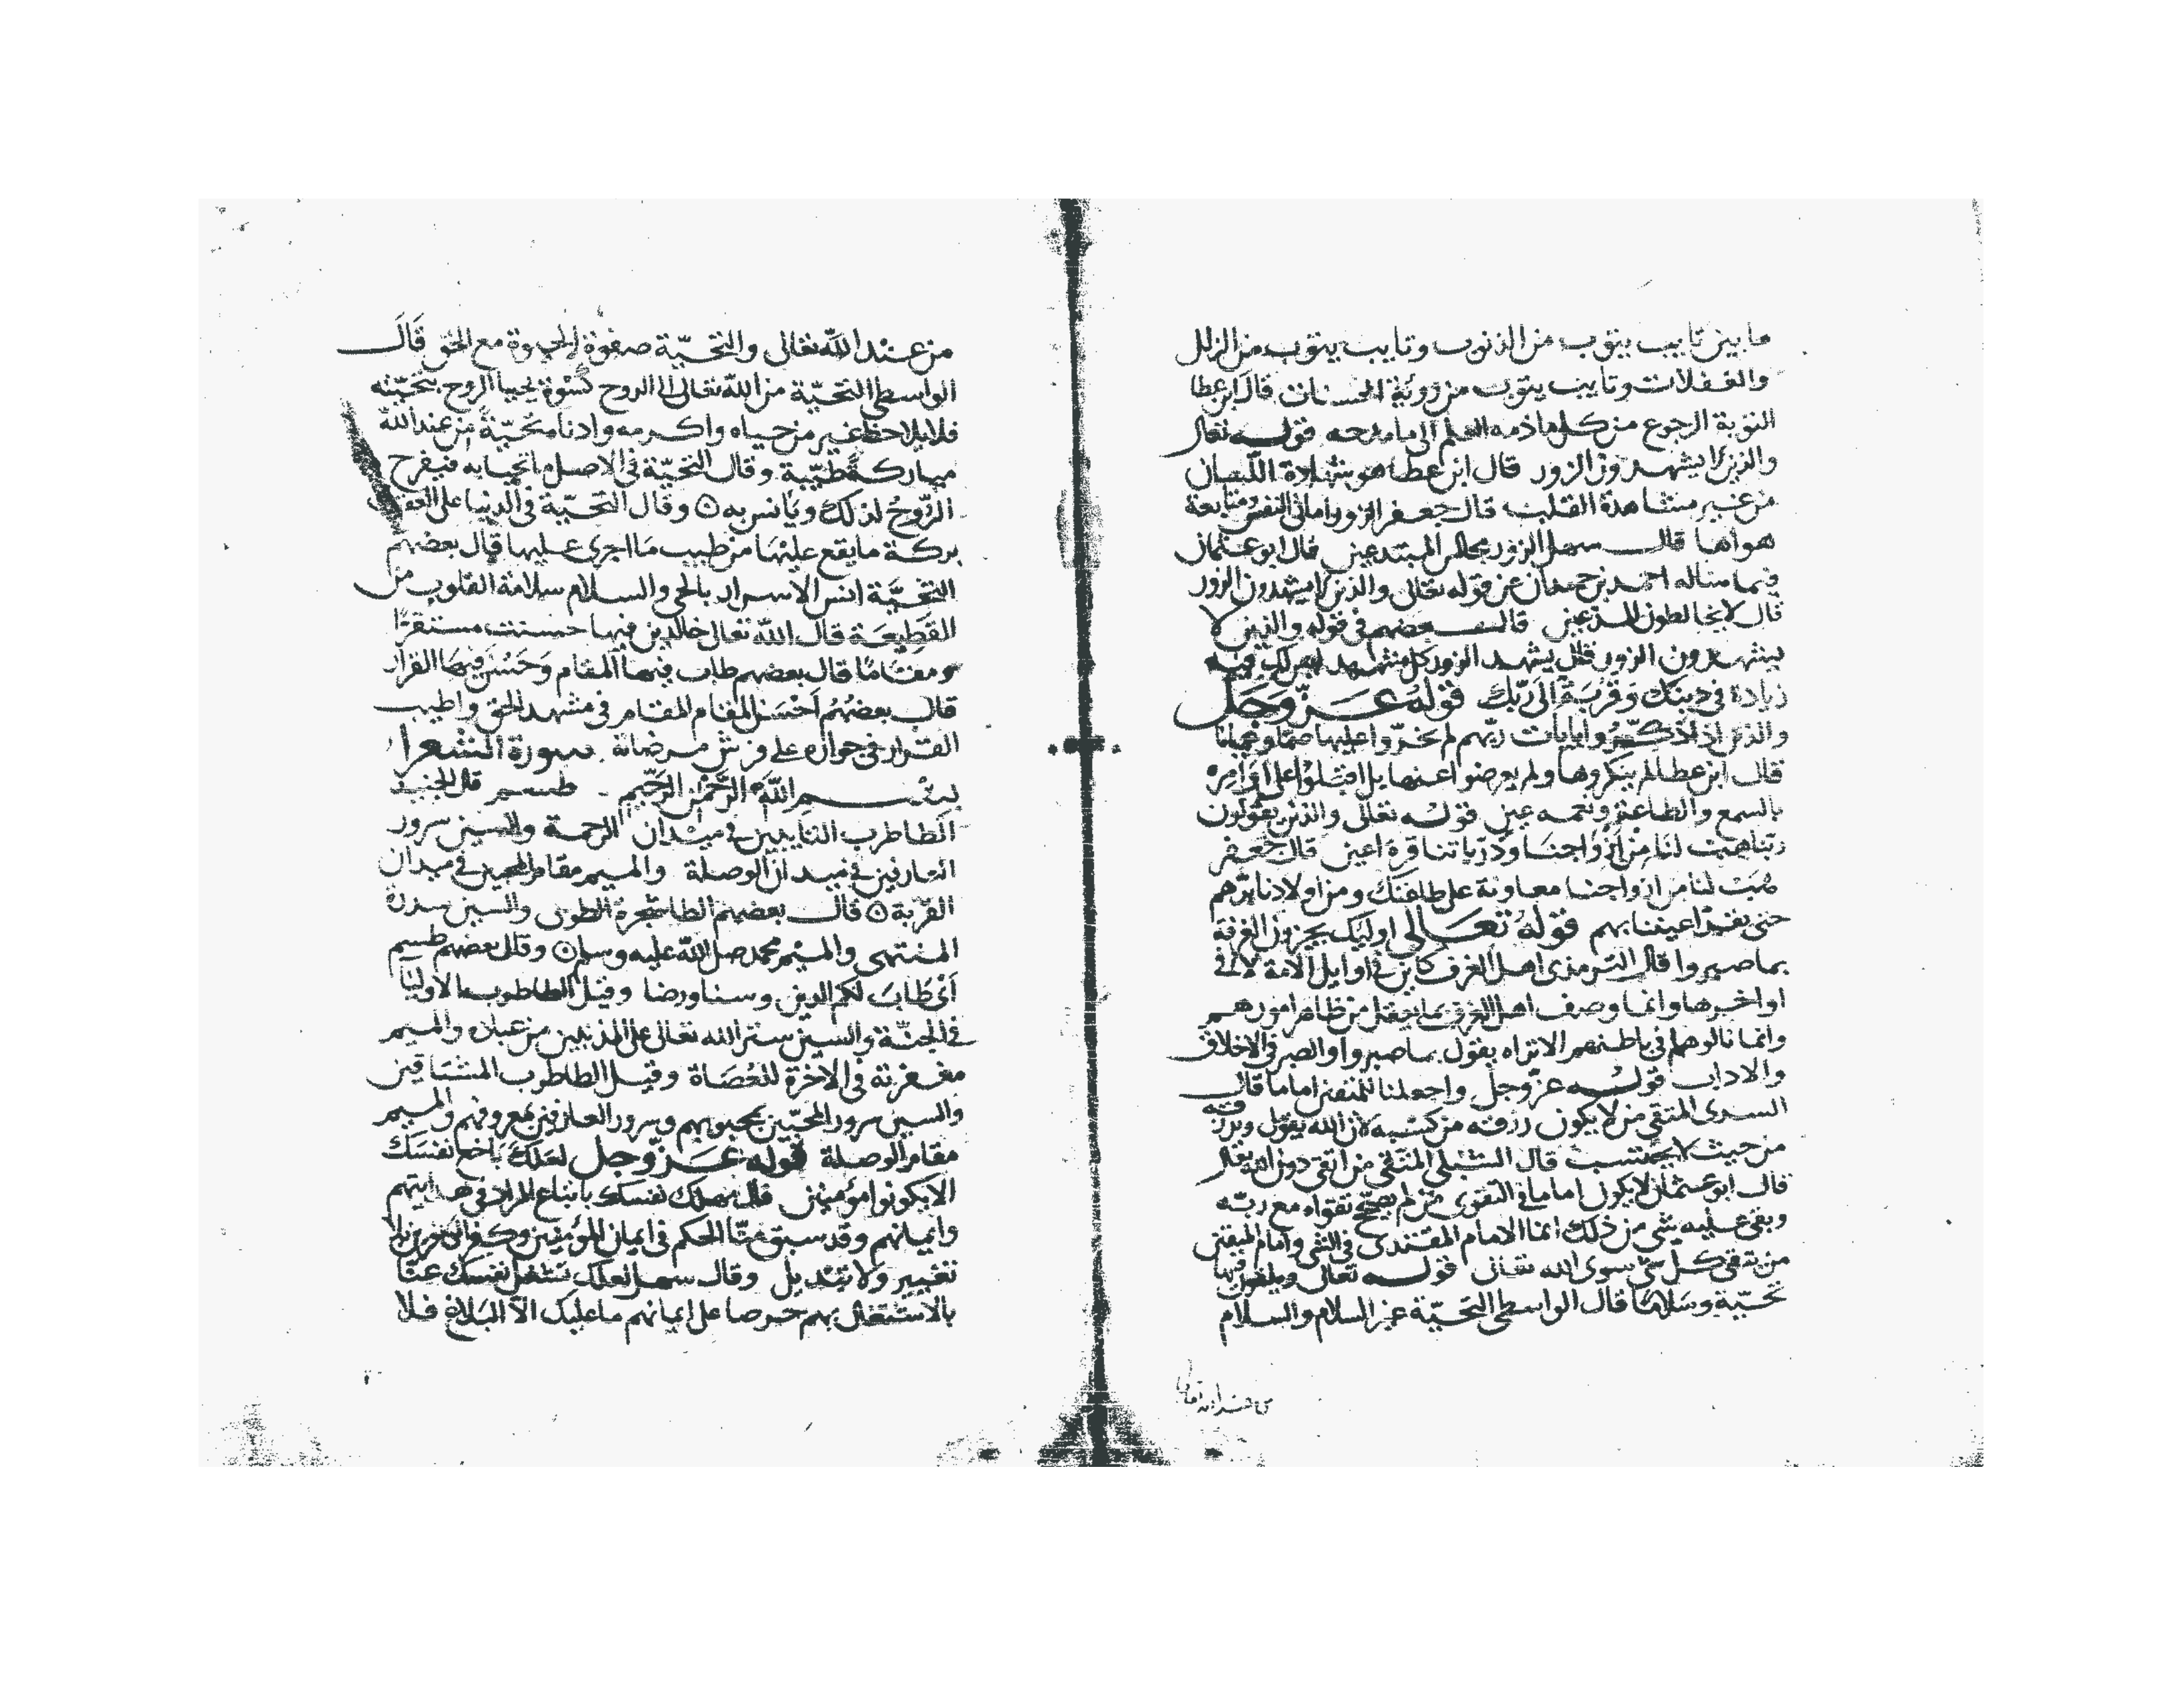 ما بين تايب يتوب من الذنوب وتايب يتوب من الزلل
والغفلات وتايب يتوب من روية الحسنات قال ابن عطا
التوبة الرجوع من كل ما ذمه العلم الى ما مدحه قوله تعالى
والذين لا يشهدون الزور قال ابن عطا هو شهادة اللسان
من غير مشاهدة القلب قال جعفر الزور امانى النفس ومتابعة
هواها قال سهل الزور مجالس المبتدعين قال ابو عثمان
فيما سئاله احمد بن حمدان عن قوله تعالى والذين لا يشهدون الزور
قال لا يخالطون المدعين قال بعضهم فى قوله والذين لا
يشهدون الزور قال يشهد الزور كل مشهد ليس لك فيه
زيادة فى دينك وقربة الى ربك قوله عز وجل
والذين اذا ذكروا بايات ربهم لم يخروا عليها صما وعميانا
قال ابن عطا لم ينكروها ولم يعرضوا عنها بل اقبلوا على اوامره
بالسمع والطاعة ونعمه عين قوله تعالى والذين يقولون
ربنا هب لنا من ازواجنا وذرياتنا قرة اعين قال جعفر
هب لنا من ازواجنا معاونة على طاعتك ومن اولادنا برهم
حتى تقر اعيننا بهم قوله تعالى اوليك يجزون الغرفة
بما صبروا قال الترمذى اهل الغرف كاين فى اوايل الامة لا فى
اواخرها وانما وصف اهل الغرف من ظاهر امورهم
وانما نالوها فى باطنهم الا تراه يقول بما صبروا والصبر فى الاخلاق
والاداب قوله عز وجل واجعلنا للمتقين اماما قال
السدى المتقى من لا يكون رزقه من كسبه لان الله يقول ويرزقه
من حيث لا يحتسب قال الشبلى المتقى من اتقى دون الله تعالى
قال ابو عثمان لا يكون اماما فى التقوى من لم يصحح تقواه مع ربه
وبقى عليه شى من ذلك انما الامام المقتدى فى الشى وامام المتقين
من يتقى كل شى سوى الله تعالى قوله تعالى ويلقون فيها
تحية وسلاما قال الواسطى التحية عز السلام والسلام
من عند الله تعالى
من عند الله تعالى والتحية صفوة الحيوة مع الحق قال
الواسطى التحية من الله تعالى الى الروح كسوة يحيا الروح بتحيته
فلا يلاحظ غير من حياه واكرمه وادنا محبة من عند الله
مباركة طيبة وقال التحية فى الاصل ما تحيا به فيفرح
الروح لذلك ويانس به وقال التحية فى الدنيا على
بركة ما يقع عليها من طيب ما اجرى عليها قال بعضهم
التحية انس الاسرار بالحى والسلام سلامة القلوب من
القطيعة قال الله تعالى خالدين فيها حسنت مستقرا
ومقاما قال بعضهم طاب فيها المقام وحسن فيها القرار
قال بعضهم احسن المقام المقام فى مشهد الحق واطيب
القرار فى جواره على فرش مرضاته سورة الشعرا
بسم الله الرحمن الرحيم طسم قال الجنيد
الطا طرب التايبين فى ميدان الرحمة والسين سرور
العارفين فى ميدان الوصلة والميم مقام المحبين فى ميدان
القربة قال بعضهم الطا شجرة الطوبى والسين سدرة
المنتهى والميم محمد صلى الله عليه وسلم وقال بعضهم طسم
اى طاب لكم الدين وسنا ورضا وقيل الطا طرب الاوليا
فى الجنة والسين ستر الله تعالى على المذنبين من عباده والميم
مغفرته فى الاخرة للعصاة وقيل الطا طرب المشتاقين
والسين سرور المحبين بمحبوبهم وسرور العارفين بمعروفهم والميم
مقام الوصلة قوله عز وجل لعلك باخع نفسك
الا يكونوا مؤمنين قال سهل مهلك نفسك باتباع المراد فى هدايتهم
وايمانهم وقد سبق منا الحكم فى ايمان المؤمنين وكفر الكافرين فلا
تغيير ولا تبديل وقال سهل لعلك تشغل نفسك عنا
بالاشتغال بهم حرصا على ايمانهم ما عليك الا البلاغ فلا